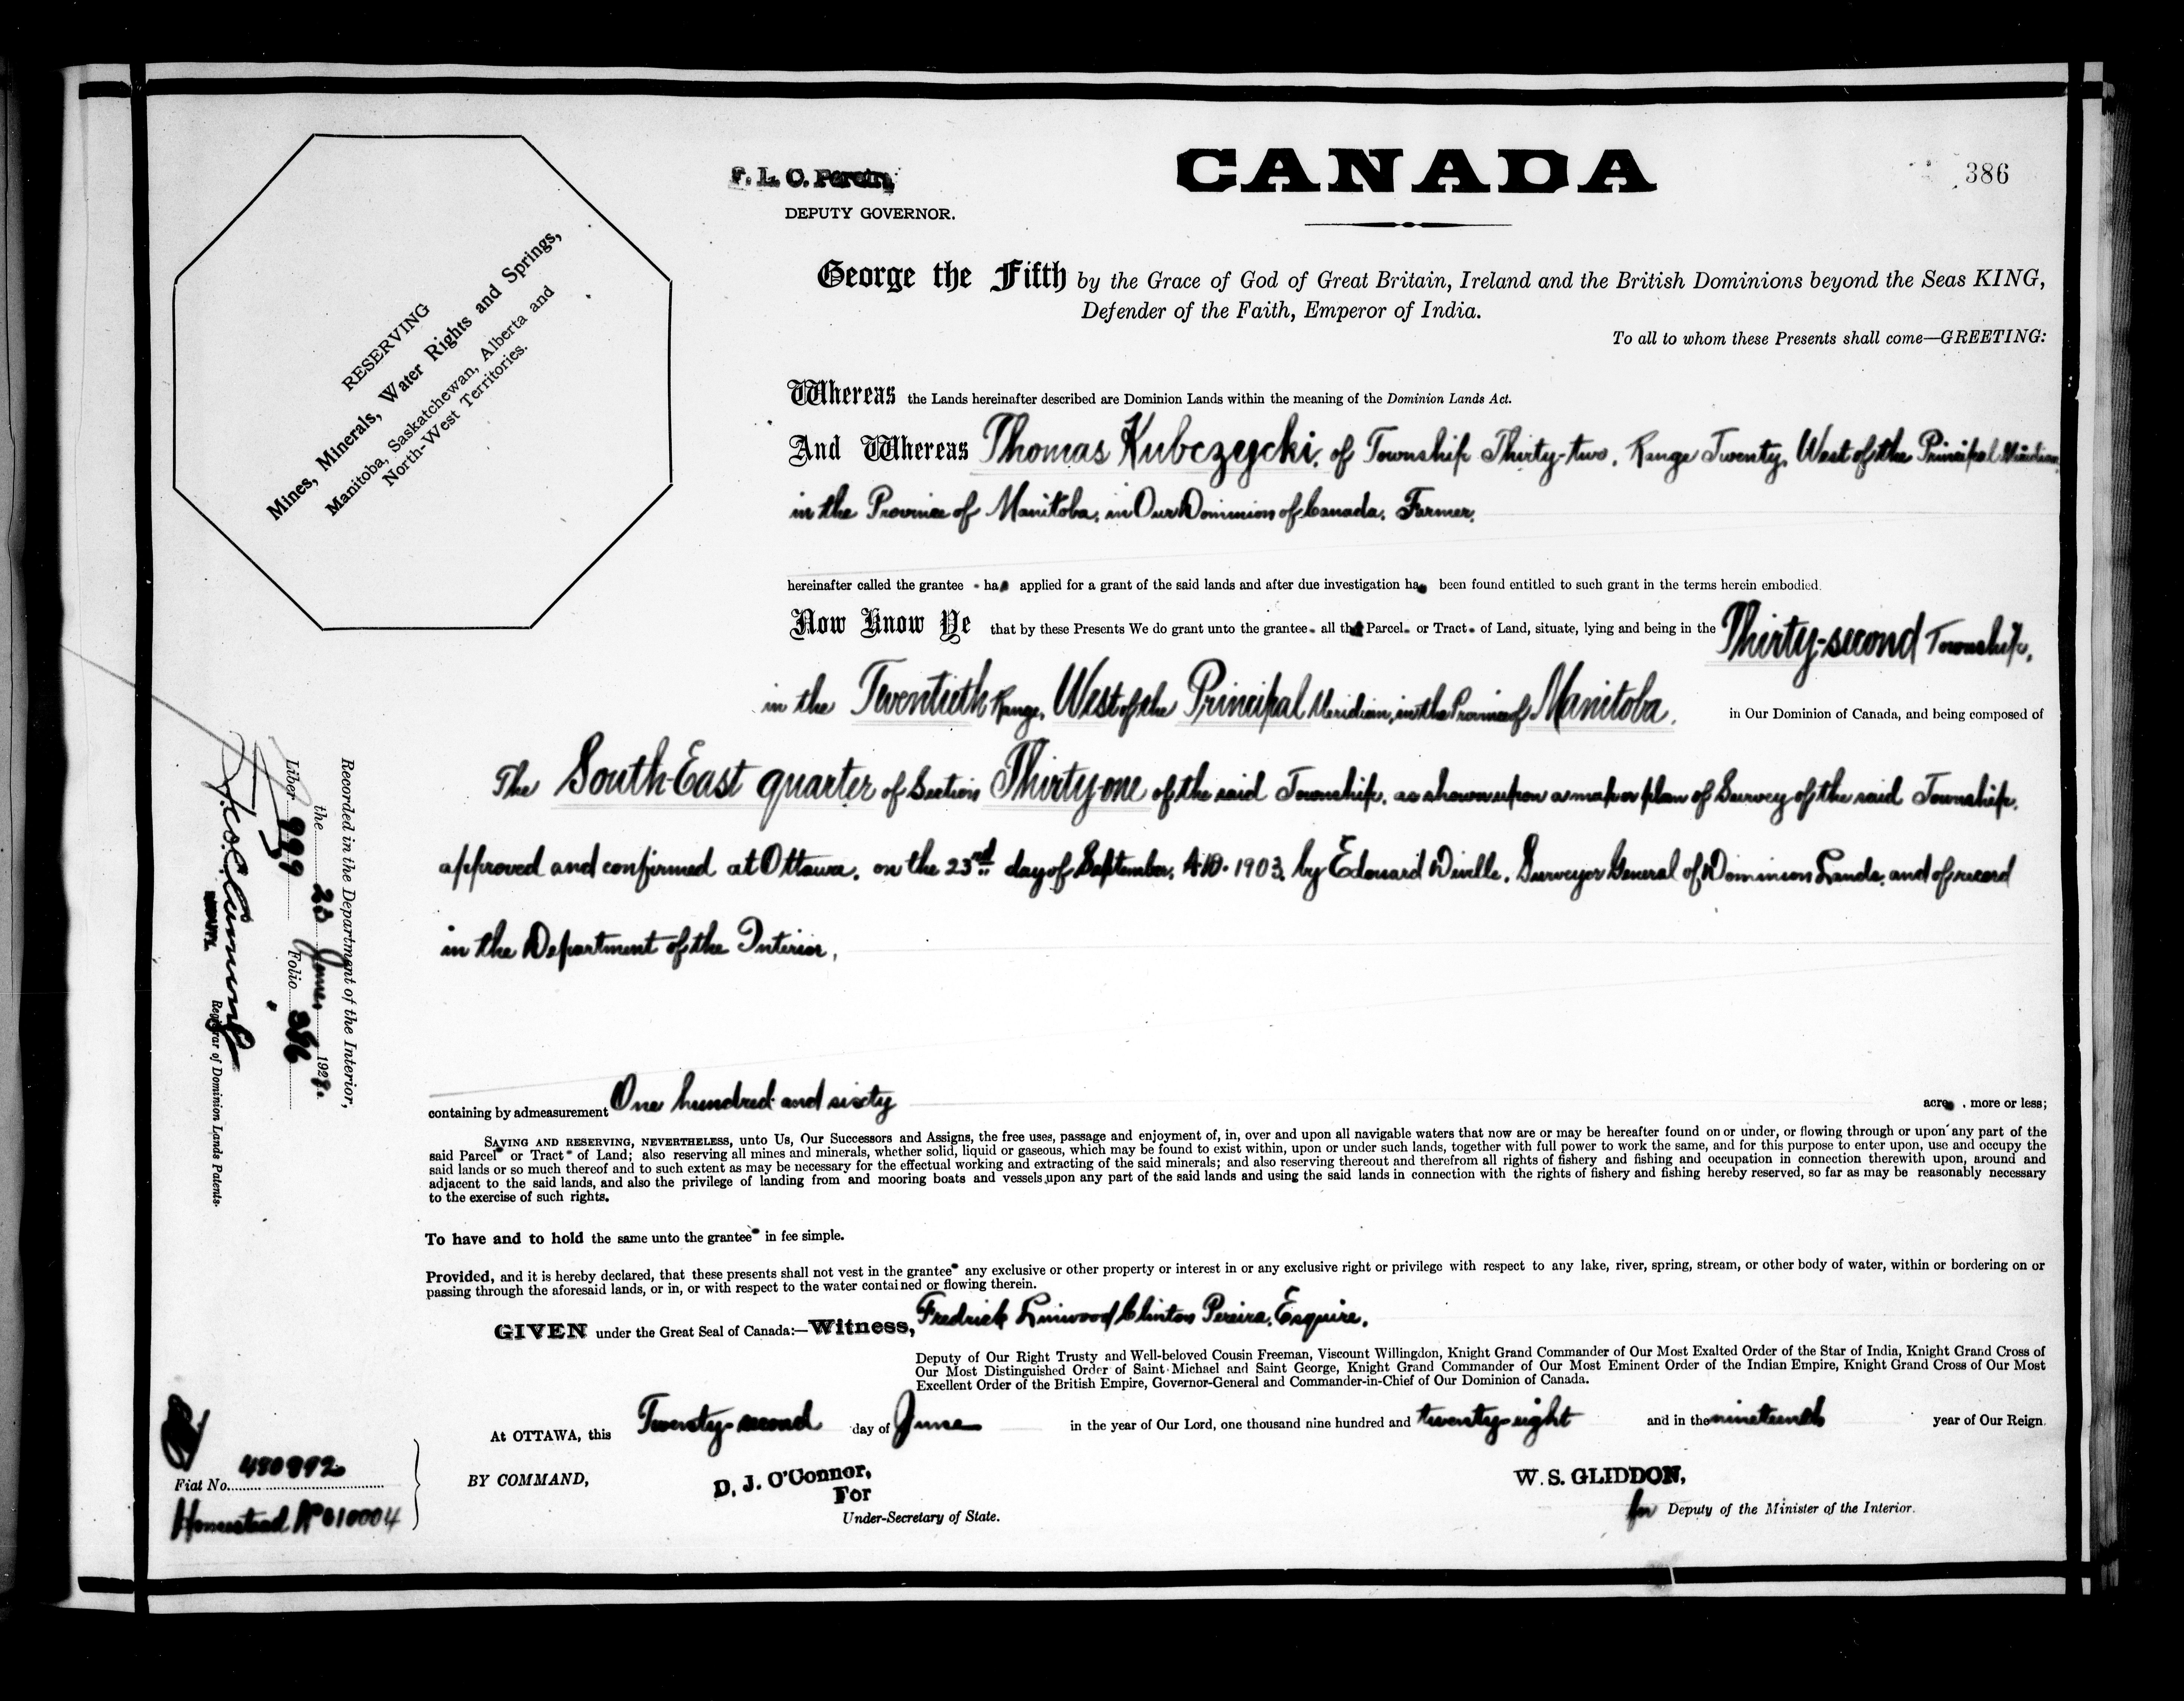 F. L. C. Pereira,
DEPUTY GOVERNOR.
CANADA
386
RESERVING
Mines, Minerals, Water Rights and Springs,
Manitoba, Saskatchewan, Alberta and
North-West Territories.
George the Fifth by the Grace of God of Great Britain, Ireland and the British Dominions beyond the Seas KING,
Defender of the Faith, Emperor of India.
To all to whom these Presents shall come—GREETING:
Whereas the Lands hereinafter described are Dominion Lands within the meaning of the Dominion Lands Act.
And Whereas Thomas Kubczycki, of Township Thirty-two, Range Twenty, West of the Principal Meridian,
in the Province of Manitoba, in Our Dominion of Canada, Farmer,
hereinafter called the grantee has applied for a grant of the said lands and after due investigation has been found entitled to such grant in the terms herein embodied.
Now Know Ye that by these Presents We do grant unto the grantee all that Parcel or Tract of Land, situate, lying and being in the Thirty-second Township,
in the Twentieth Range, West of the Principal Meridian, in the Province of Manitoba, in Our Dominion of Canada, and being composed of
The South-East quarter of Section Thirty-one of the said Township, as shown upon a map or plan of Survey of the said Township,
approved and confirmed at Ottawa, on the 23rd day of September, A.D. 1903, by Edouard Deville, Surveyor General of Dominion Lands, and of record
in the Department of the Interior,
containing by admeasurement One hundred and sixty acres, more or less;
SAVING AND RESERVING, NEVERTHELESS, unto Us, Our Successors and Assigns, the free uses, passage and enjoyment of, in, over and upon all navigable waters that now are or may be hereafter found on or under, or flowing through or upon any part of the
said Parcel or Tract of Land; also reserving all mines and minerals, whether solid, liquid or gaseous, which may be found to exist within, upon or under such lands, together with full power to work the same, and for this purpose to enter upon, use and occupy the
said lands or so much thereof and to such extent as may be necessary for the effectual working and extracting of the said minerals; and also reserving thereout and therefrom all rights of fishery and fishing and occupation in connection therewith upon, around and
adjacent to the said lands, and also the privilege of landing from and mooring boats and vessels upon any part of the said lands and using the said lands in connection with the rights of fishery and fishing hereby reserved, so far as may be reasonably necessary
to the exercise of such rights.
To have and to hold the same unto the grantee in fee simple.
Provided, and it is hereby declared, that these presents shall not vest in the grantee any exclusive or other property or interest in or any exclusive right or privilege with respect to any lake, river, spring, stream, or other body of water, within or bordering on or
passing through the aforesaid lands, or in, or with respect to the water contained or flowing therein.
GIVEN under the Great Seal of Canada:—Witness, Fredrick Linwood Clinton Pereira, Esquire,
Deputy of Our Right Trusty and Well-beloved Cousin Freeman, Viscount Willingdon, Knight Grand Commander of Our Most Exalted Order of the Star of India, Knight Grand Cross of
Our Most Distinguished Order of Saint Michael and Saint George, Knight Grand Commander of Our Most Eminent Order of the Indian Empire, Knight Grand Cross of Our Most
Excellent Order of the British Empire, Governor-General and Commander-in-Chief of Our Dominion of Canada.
At OTTAWA, this Twenty-second day of June in the year of Our Lord, one thousand nine hundred and twenty-eight and in the nineteenth year of Our Reign.
BY COMMAND,
D. J. O'Connor,
For
Under-Secretary of State.
W. S. GLIDDON,
for Deputy of the Minister of the Interior.
Recorded in the Department of the Interior,
the 23 June 1928.
Liber 999 Folio 386
Registrar of Dominion Lands Patents.
Fiat No. 480992
Homestead No 610004